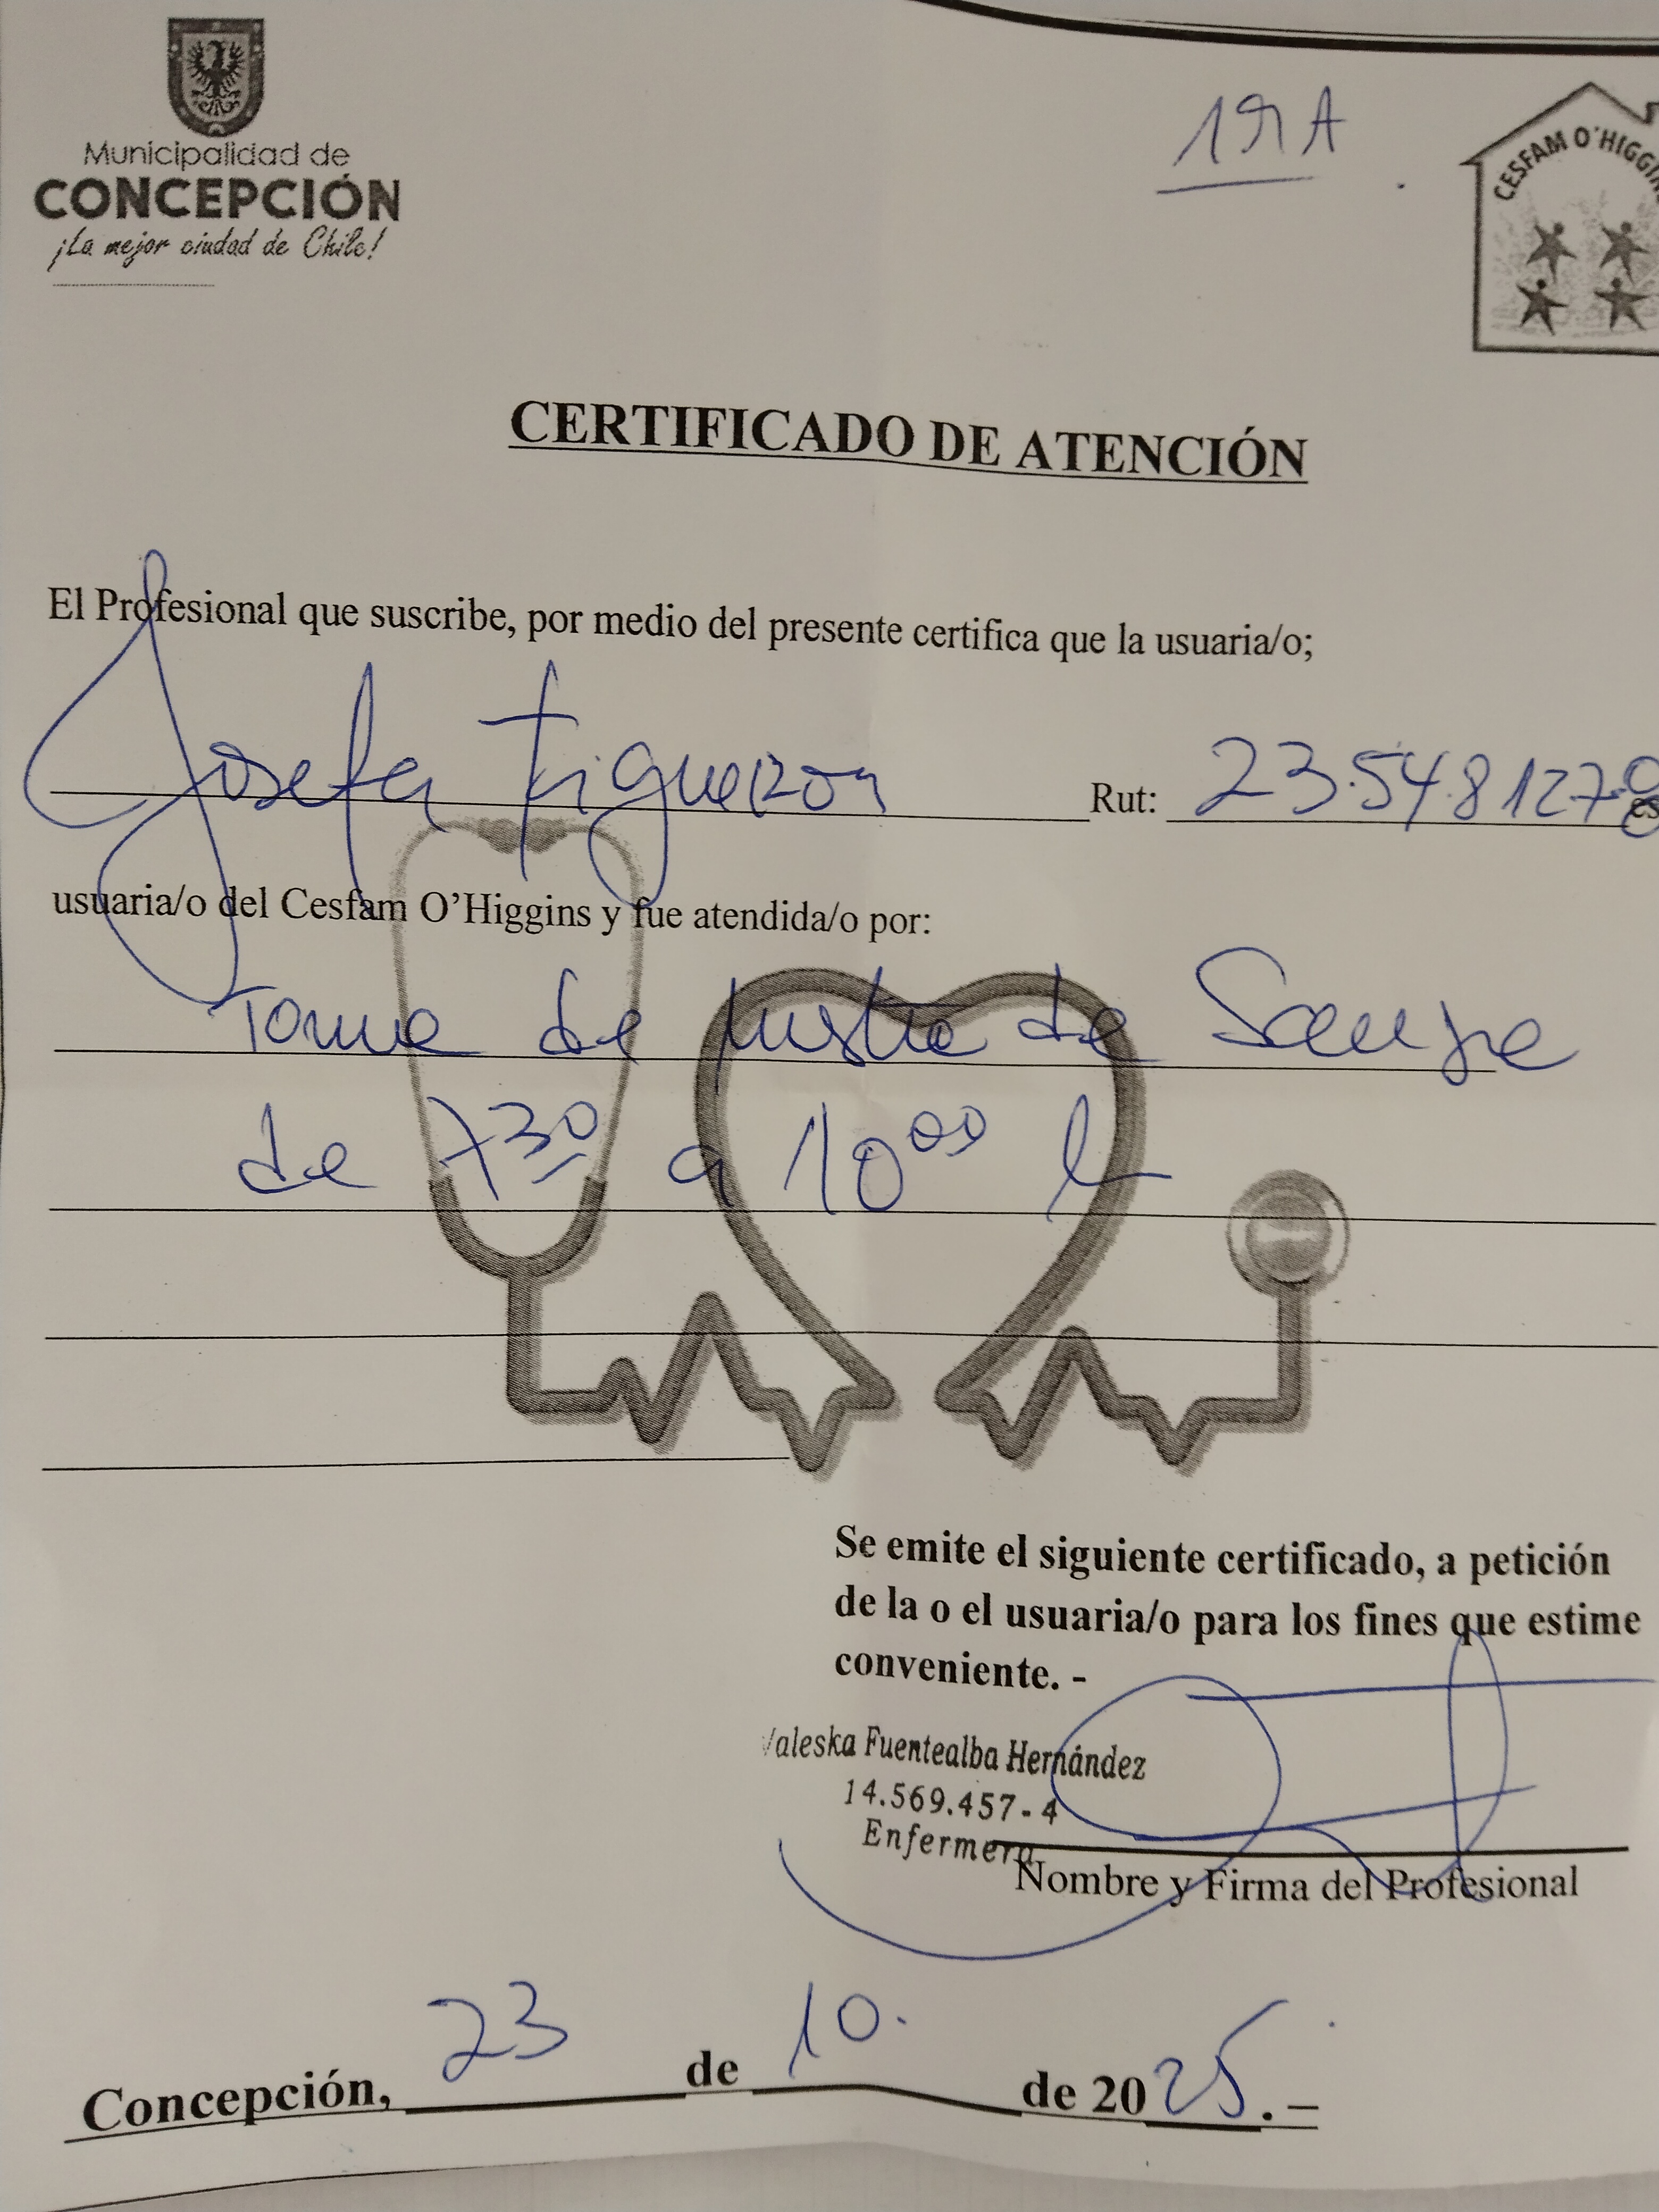 Municipalidad de
CONCEPCIÓN
¡La mejor ciudad de Chile!
CESFAM O'HIGGIN
CERTIFICADO DE ATENCIÓN
El Profesional que suscribe, por medio del presente certifica que la usuaria/o;
Josefa Figueroa Rut: 23.548127-8 es
usuaria/o del Cesfam O'Higgins y fue atendida/o por:
Toma de de Sangre
de 7 30 a 10 00
Se emite el siguiente certificado, a petición
de la o el usuaria/o para los fines que estime
conveniente. -
Valeska Fuentealba Hernández
14.569.457-4
Enfermera
Nombre y Firma del Profesional
Concepción, 23 de 10. de 2025.–